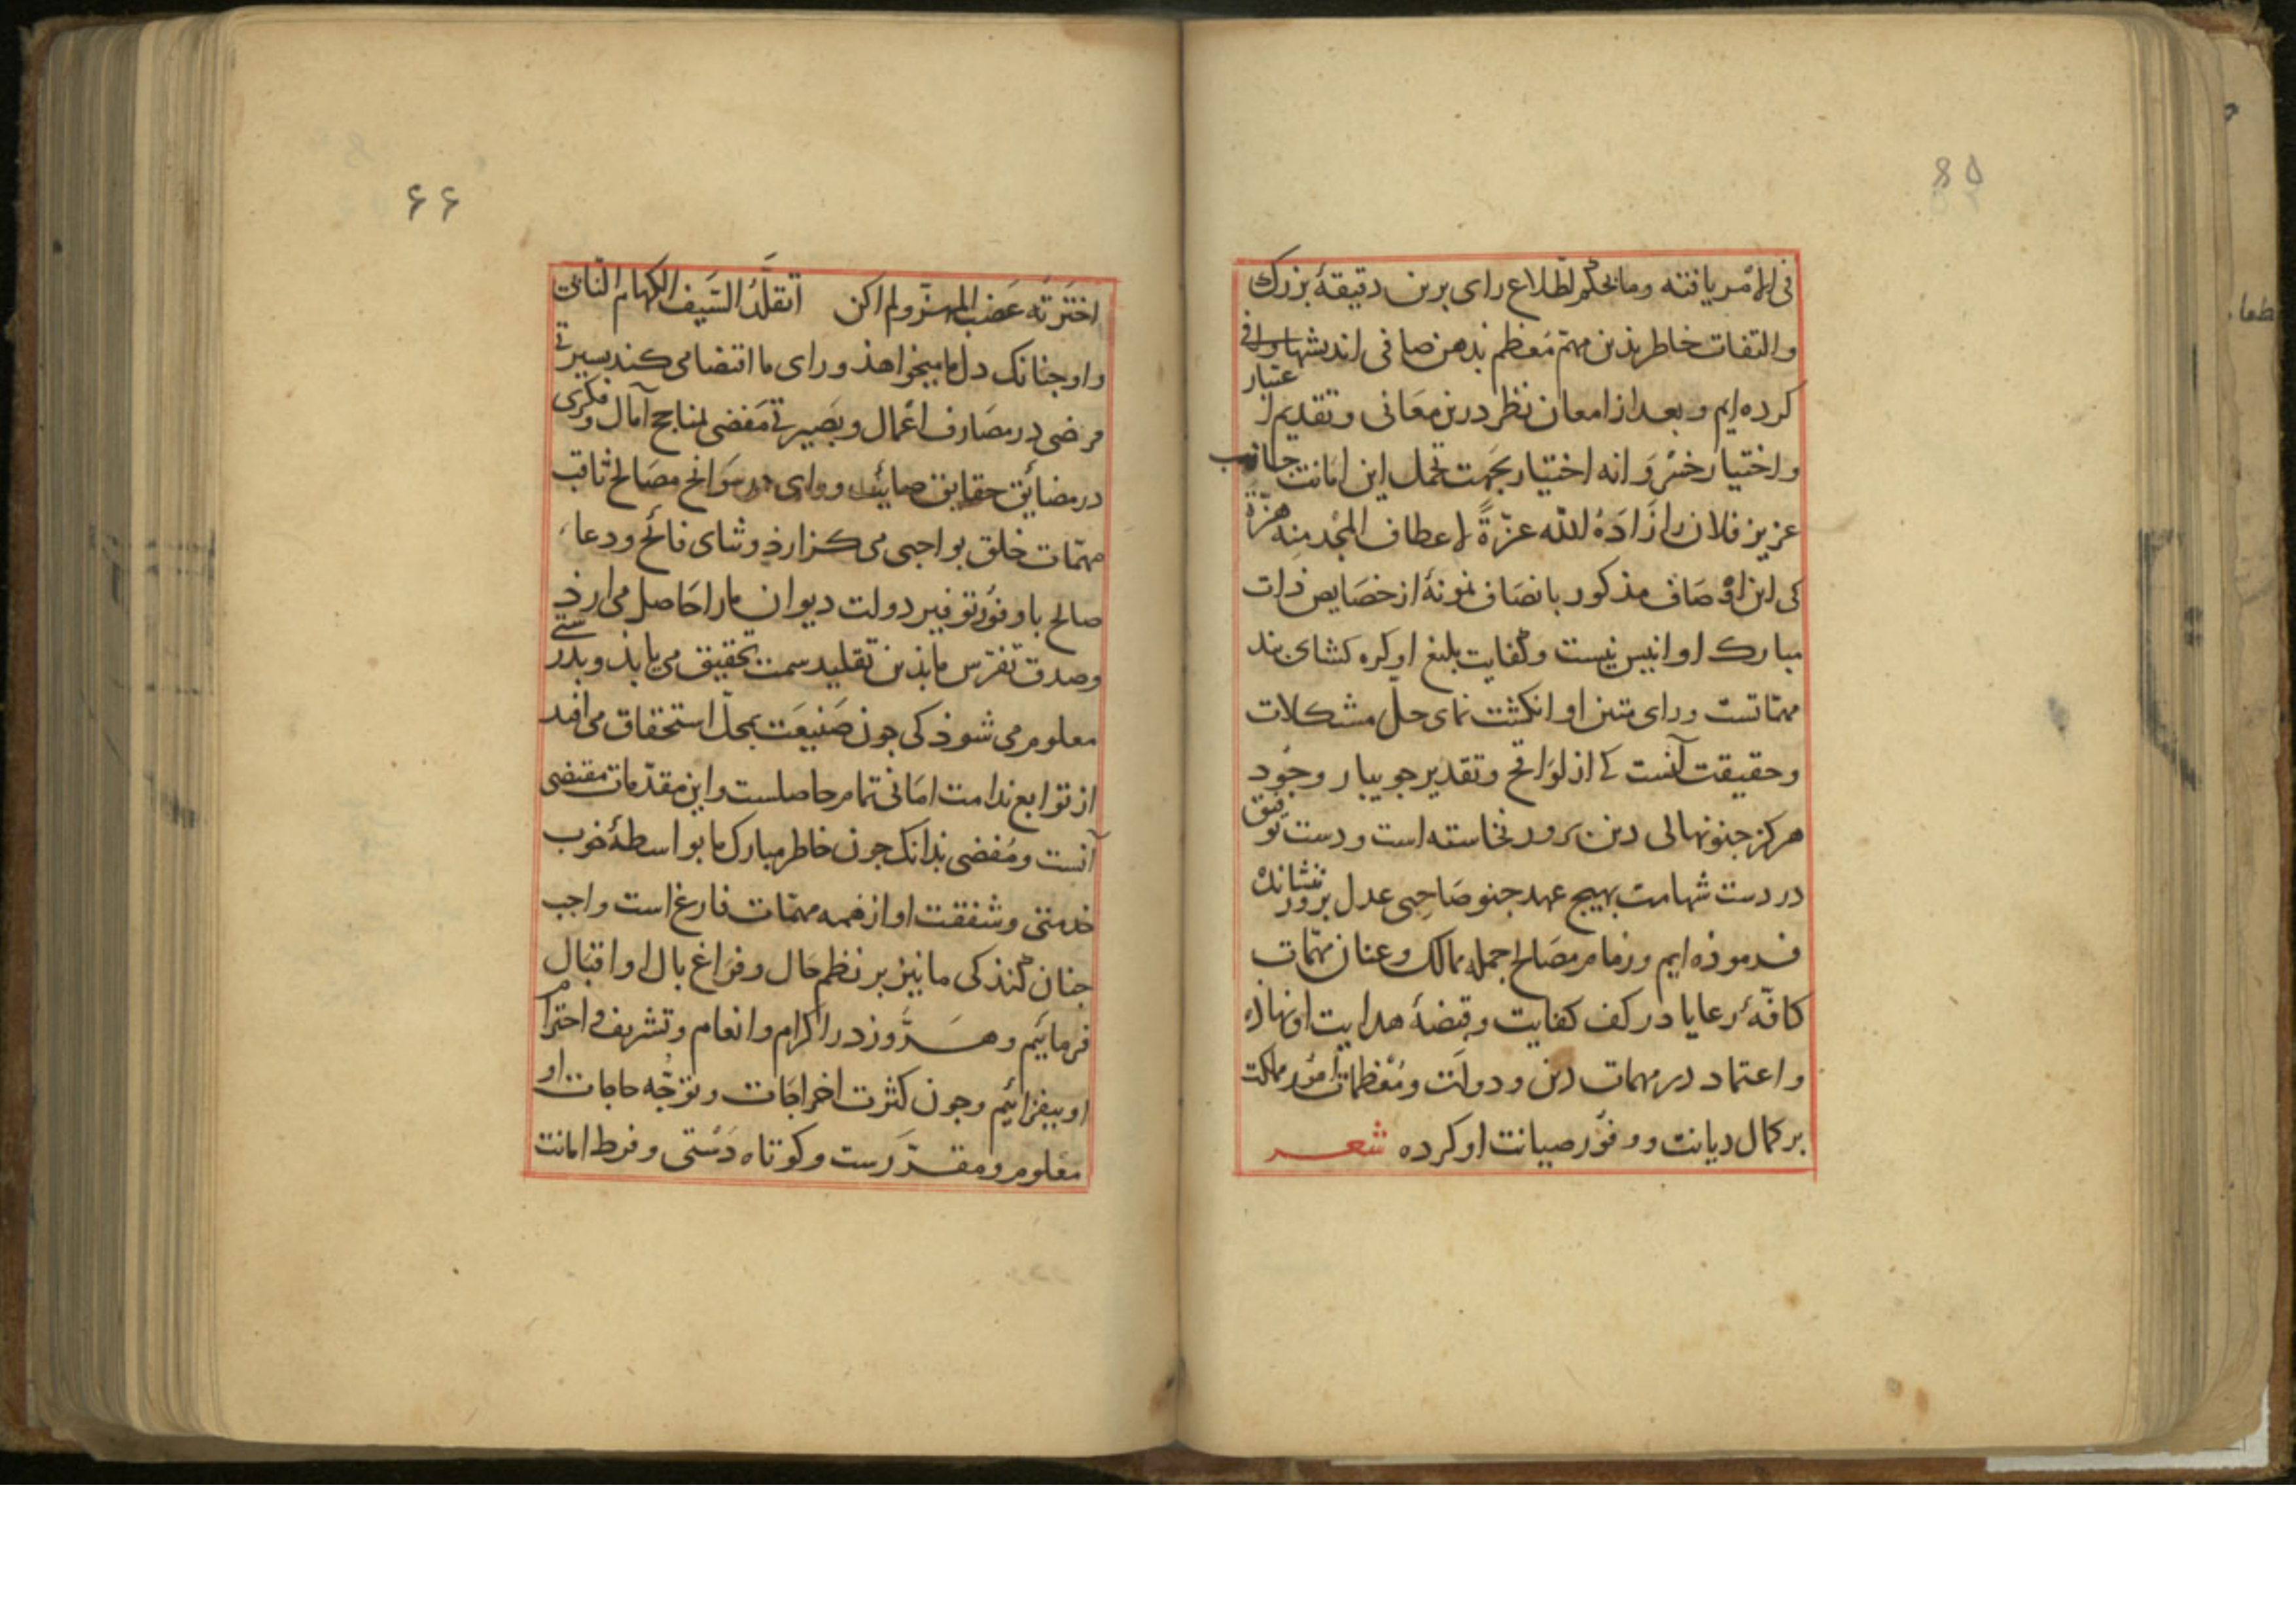 فی الامر یافته وما بحکم اطلاع رای برین دقیقهٔ بزرک
والتفات خاطر بذین مهم معظم بذهن صافی اندیشها وافی
کرده ایم و بعد از امعان نظر درین معانی و تقدیم اعتبار
واختیار خیر وانه اختیار بجهت تحمل این امانت جانب
عزیز فلان را زاده الله عزّة لاعطاف المجد منه هزّة
کی این اوصاف مذکور بانصاف نمونهٔ از خصایص ذات
مبارک او انیس نیست وکفایت بلیغ او کره کشای بند
مهماتست ورای متین او انکشت نمای حل مشکلات
وحقیقت آنست کی از لواقح وتقدیر جویبار وجود
هرکز جنو نهالی دین برور نخاسته است ودست توفیق
در دست شهامت بهیچ عهد جنو صاحبی عدل برور ننشانده
فرموذه ایم وزمام مصالح جمله ممالک وعنان مهمات
کافّهٔ رعایا در کف کفایت وقبضهٔ هدایت او نهاذه
واعتماد در مهمات دین و دولت ومعظمات امور مملکت
بر کمال دیانت و وفور صیانت او کرده شعر
۶۶
اخترته عضب المهزّ ولم اکن اتقلّد السیف الکهام النّابی
واو جنانک دل ما میخواهذ ورای ما اقتضا می کند بسیرتی
مرضی در مصارف اعمال وبصیرتی مفضی بمناجح آمال وفکری
در مضایق حقایق صایب ورای در سوانح مصالح ثاقب
مهمّات خلق بواجبی می کزارذ وثنای فائح ودعاء
صالح با وفور توفیر دولت دیوان ما را حاصل می ارذ
وصدق تفرّس ما بذین تقلید سمت تحقیق می یابذ وبدرستی
معلوم می شوذ کی جون صنیعت بمحل استحقاق می افتد
از توابع ندامت امانی تمام حاصلست واین مقدّمات مقتضی
آنست ومفضی بذانک جون خاطر مبارک ما بواسطهٔ خوب
خدمتی وشفقت او از همه مهمّات فارغ است واجب
جنان کند کی ما نیز بر نظم حال وفراغ بال او اقبال
فرمائیم وهر روز در اکرام وانعام وتشریف واحترام
او بیفزائیم وجون کثرت اخراجات وتوجّه حاجات او
معلوم ومقرّرست وکوتاه دستی وفرط امانت